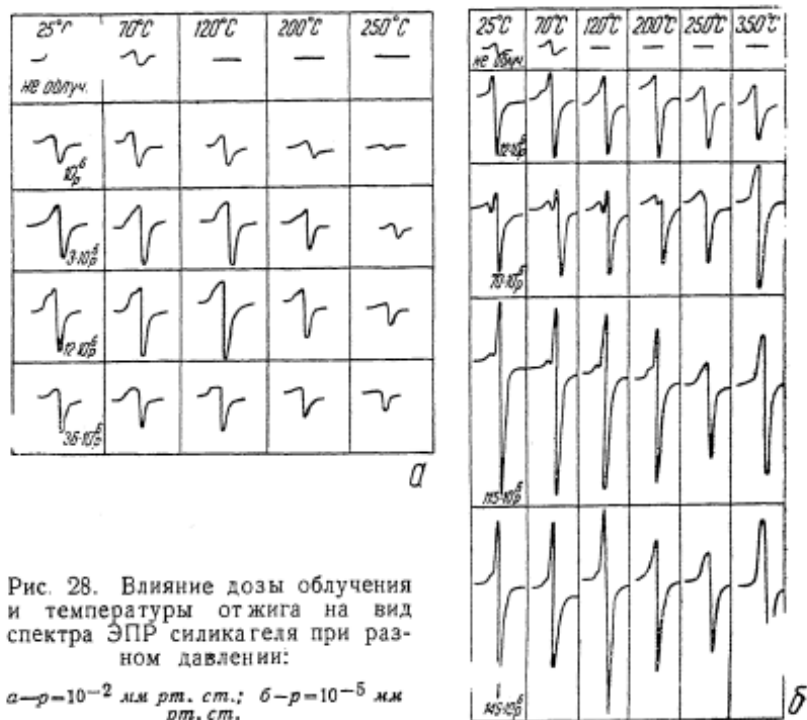 25°C 70°C 120°C 200°C 250°C
не облуч.
10⁶р
3·10⁶р
12·10⁶р
36·10⁶р
а
25°C 70°C 120°C 200°C 250°C 350°C
не облуч.
12·10⁶р
70·10⁶р
115·10⁶р
145·10⁶р
б
Рис. 28. Влияние дозы облучения
и температуры отжига на вид
спектра ЭПР силикагеля при раз-
ном давлении:
а—р=10⁻² мм рт. ст.; б—р=10⁻⁵ мм
рт. ст.